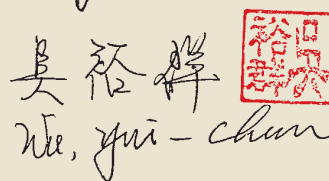 吳裕群
吳裕群
Wu, Yui-chun